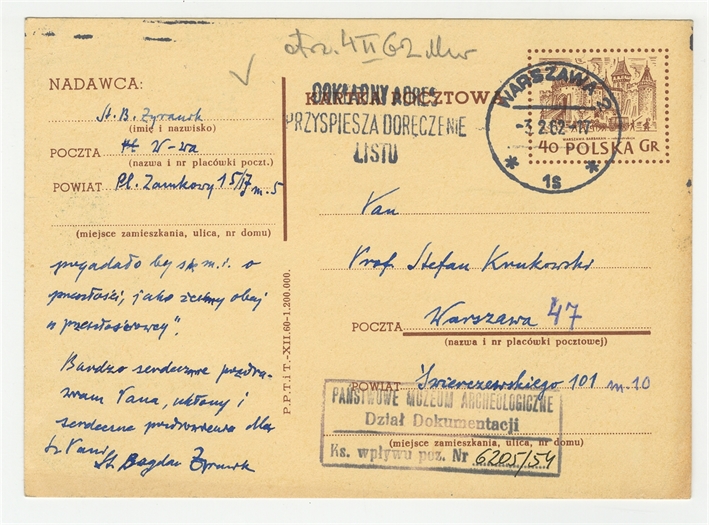 otrz. 4 II 62
NADAWCA:
St. B. Zyranik
(imię i nazwisko)
POCZTA W-wa
(nazwa i nr placówki poczt.)
POWIAT Pl. Zamkowy 15/17 m. 5
(miejsce zamieszkania, ulica, nr domu)
pogadało by się m.i. o
przeszłości, jako żeśmy obaj
"przeszłościowcy".
Bardzo serdecznie pozdra-
wiam Pana, ukłony i
serdeczne pozdrowienia dla
Pani
St. Bogdan
P.P.T.i T.-XII.60-1.200.000.
KARTKA POCZTOWA
DOKŁADNY ADRES
PRZYSPIESZA DORĘCZENIE
LISTU
WARSZAWA 2
-3.2.62-17
1s
40 POLSKA GR
Pan
Prof. Stefan Krukowski
POCZTA Warszawa 47
(nazwa i nr placówki pocztowej)
POWIAT Świerczewskiego 101 m. 10
(miejsce zamieszkania, ulica, nr domu)
PAŃSTWOWE MUZEUM ARCHEOLOGICZNE
Dział Dokumentacji
Ks. wpływu poz. Nr 6205/54